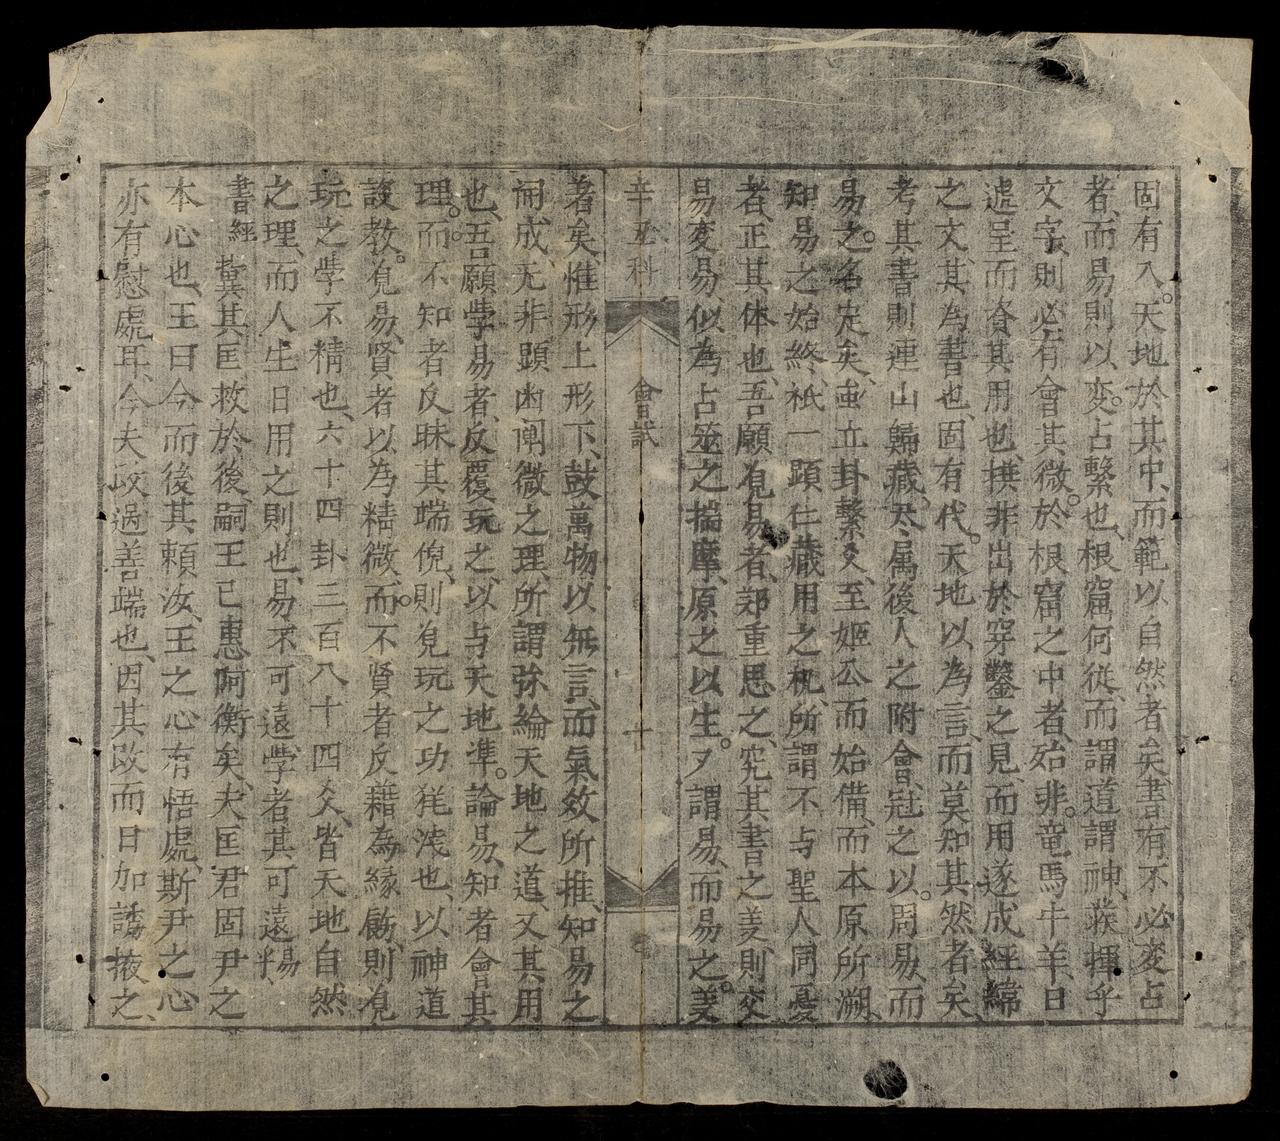 固有入。天地於其中、而範以自然者矣、書有不必変占
者、而易則以変。占繫也、根窟何從、而謂道謂神、發揮乎
文字、則必有會其微。於根窟之中者、殆非。竜馬牛羊、日
遞呈而資其用也、撰非出於穿鑿之見、而用遂成經緯
之文、其為書也、固有代。天地以為言、而莫知其然者矣、
考其書則連山歸藏。尽属後人之附會、冠之以。周易、而
易。之名定矣、虫立卦繫爻、至姬公而始備、而本原所溯、
知易之始終、祇一顕仁藏用之机、所謂不与聖人同憂
者、正其体也、吾願覓易者、鄭重思之、究其書之美、則交
易変易、似為占筮之揣摩、原之以生。生謂易、而易之。美
辛丑科 會試 十
著矣、惟形上形下、鼓萬物以無言、而氣效所推、知易之
開成、无非顕幽闡微之理、所謂弥綸天地之道、又其用
也、吾願斈易者、反覆玩之、以与天地準。論易、知者會其
理。而不知者反昧其端倪、則覓玩之功、毣浅也、以神道
設教。覓易、賢者以為精微、而。不賢者反藉為緣飾、則覓
玩之斈不精也、六十四卦三百八十四爻、皆天地自然
之理、而人生日用之則也、易不可遠、斈者其可遠易乎、
書經 冀其匡救於後、嗣王已惠阿衡矣、夫匡君固尹之
本心也、王曰今而後其頼汝、王之心有悟處、斯尹之心
亦有慰處耳、今夫改過善端也、因其改而日加誘掖之、